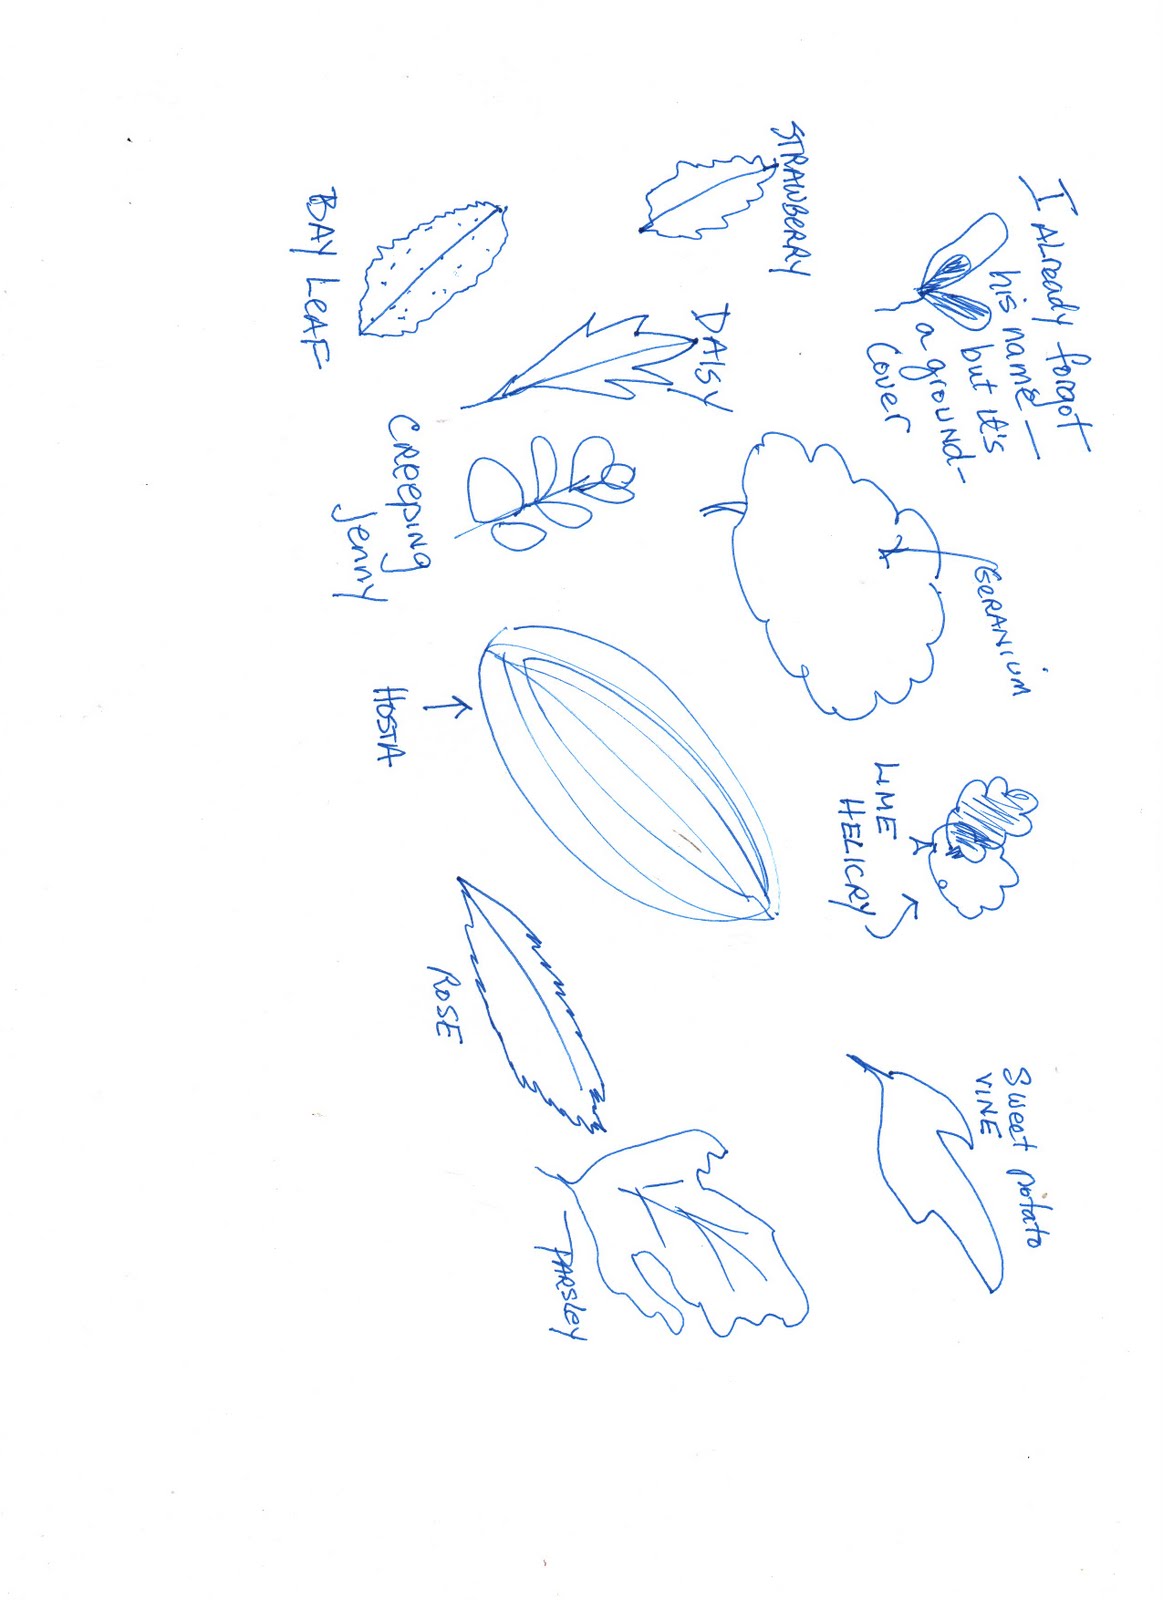 I Already forgot
his name —
but it's
a ground-
cover
GERANIUM
LIME
HELICRY
Sweet potato
VINE
STRAWBERRY
DAISY
BAY LEAF
Creeping
Jenny
HOSTA
ROSE
PARSLEY